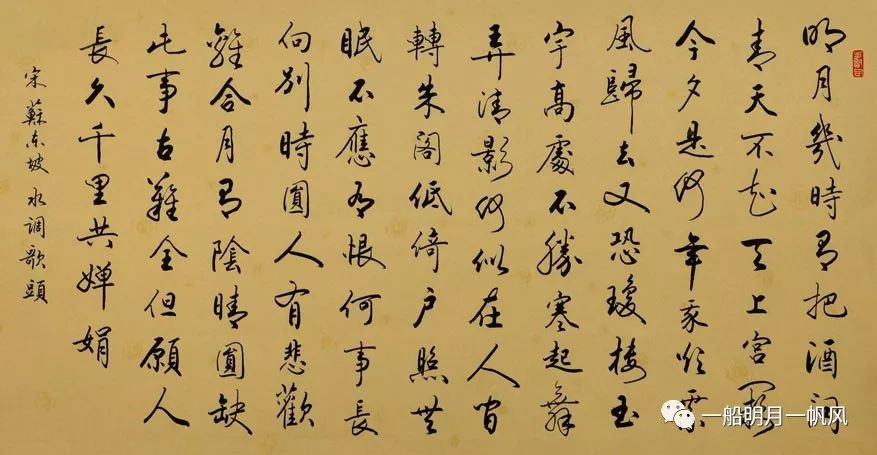 明月幾時有把酒問
青天不知天上宮闕
今夕是何年我欲乘
風歸去又恐瓊樓玉
宇高處不勝寒起舞
弄清影何似在人間
轉朱閣低倚户照無
眠不應有恨何事長
向別時圓人有悲歡
離合月有陰晴圓缺
此事古難全但願人
長久千里共嬋娟
宋蘇东坡水调歌頭
一船明月一帆风